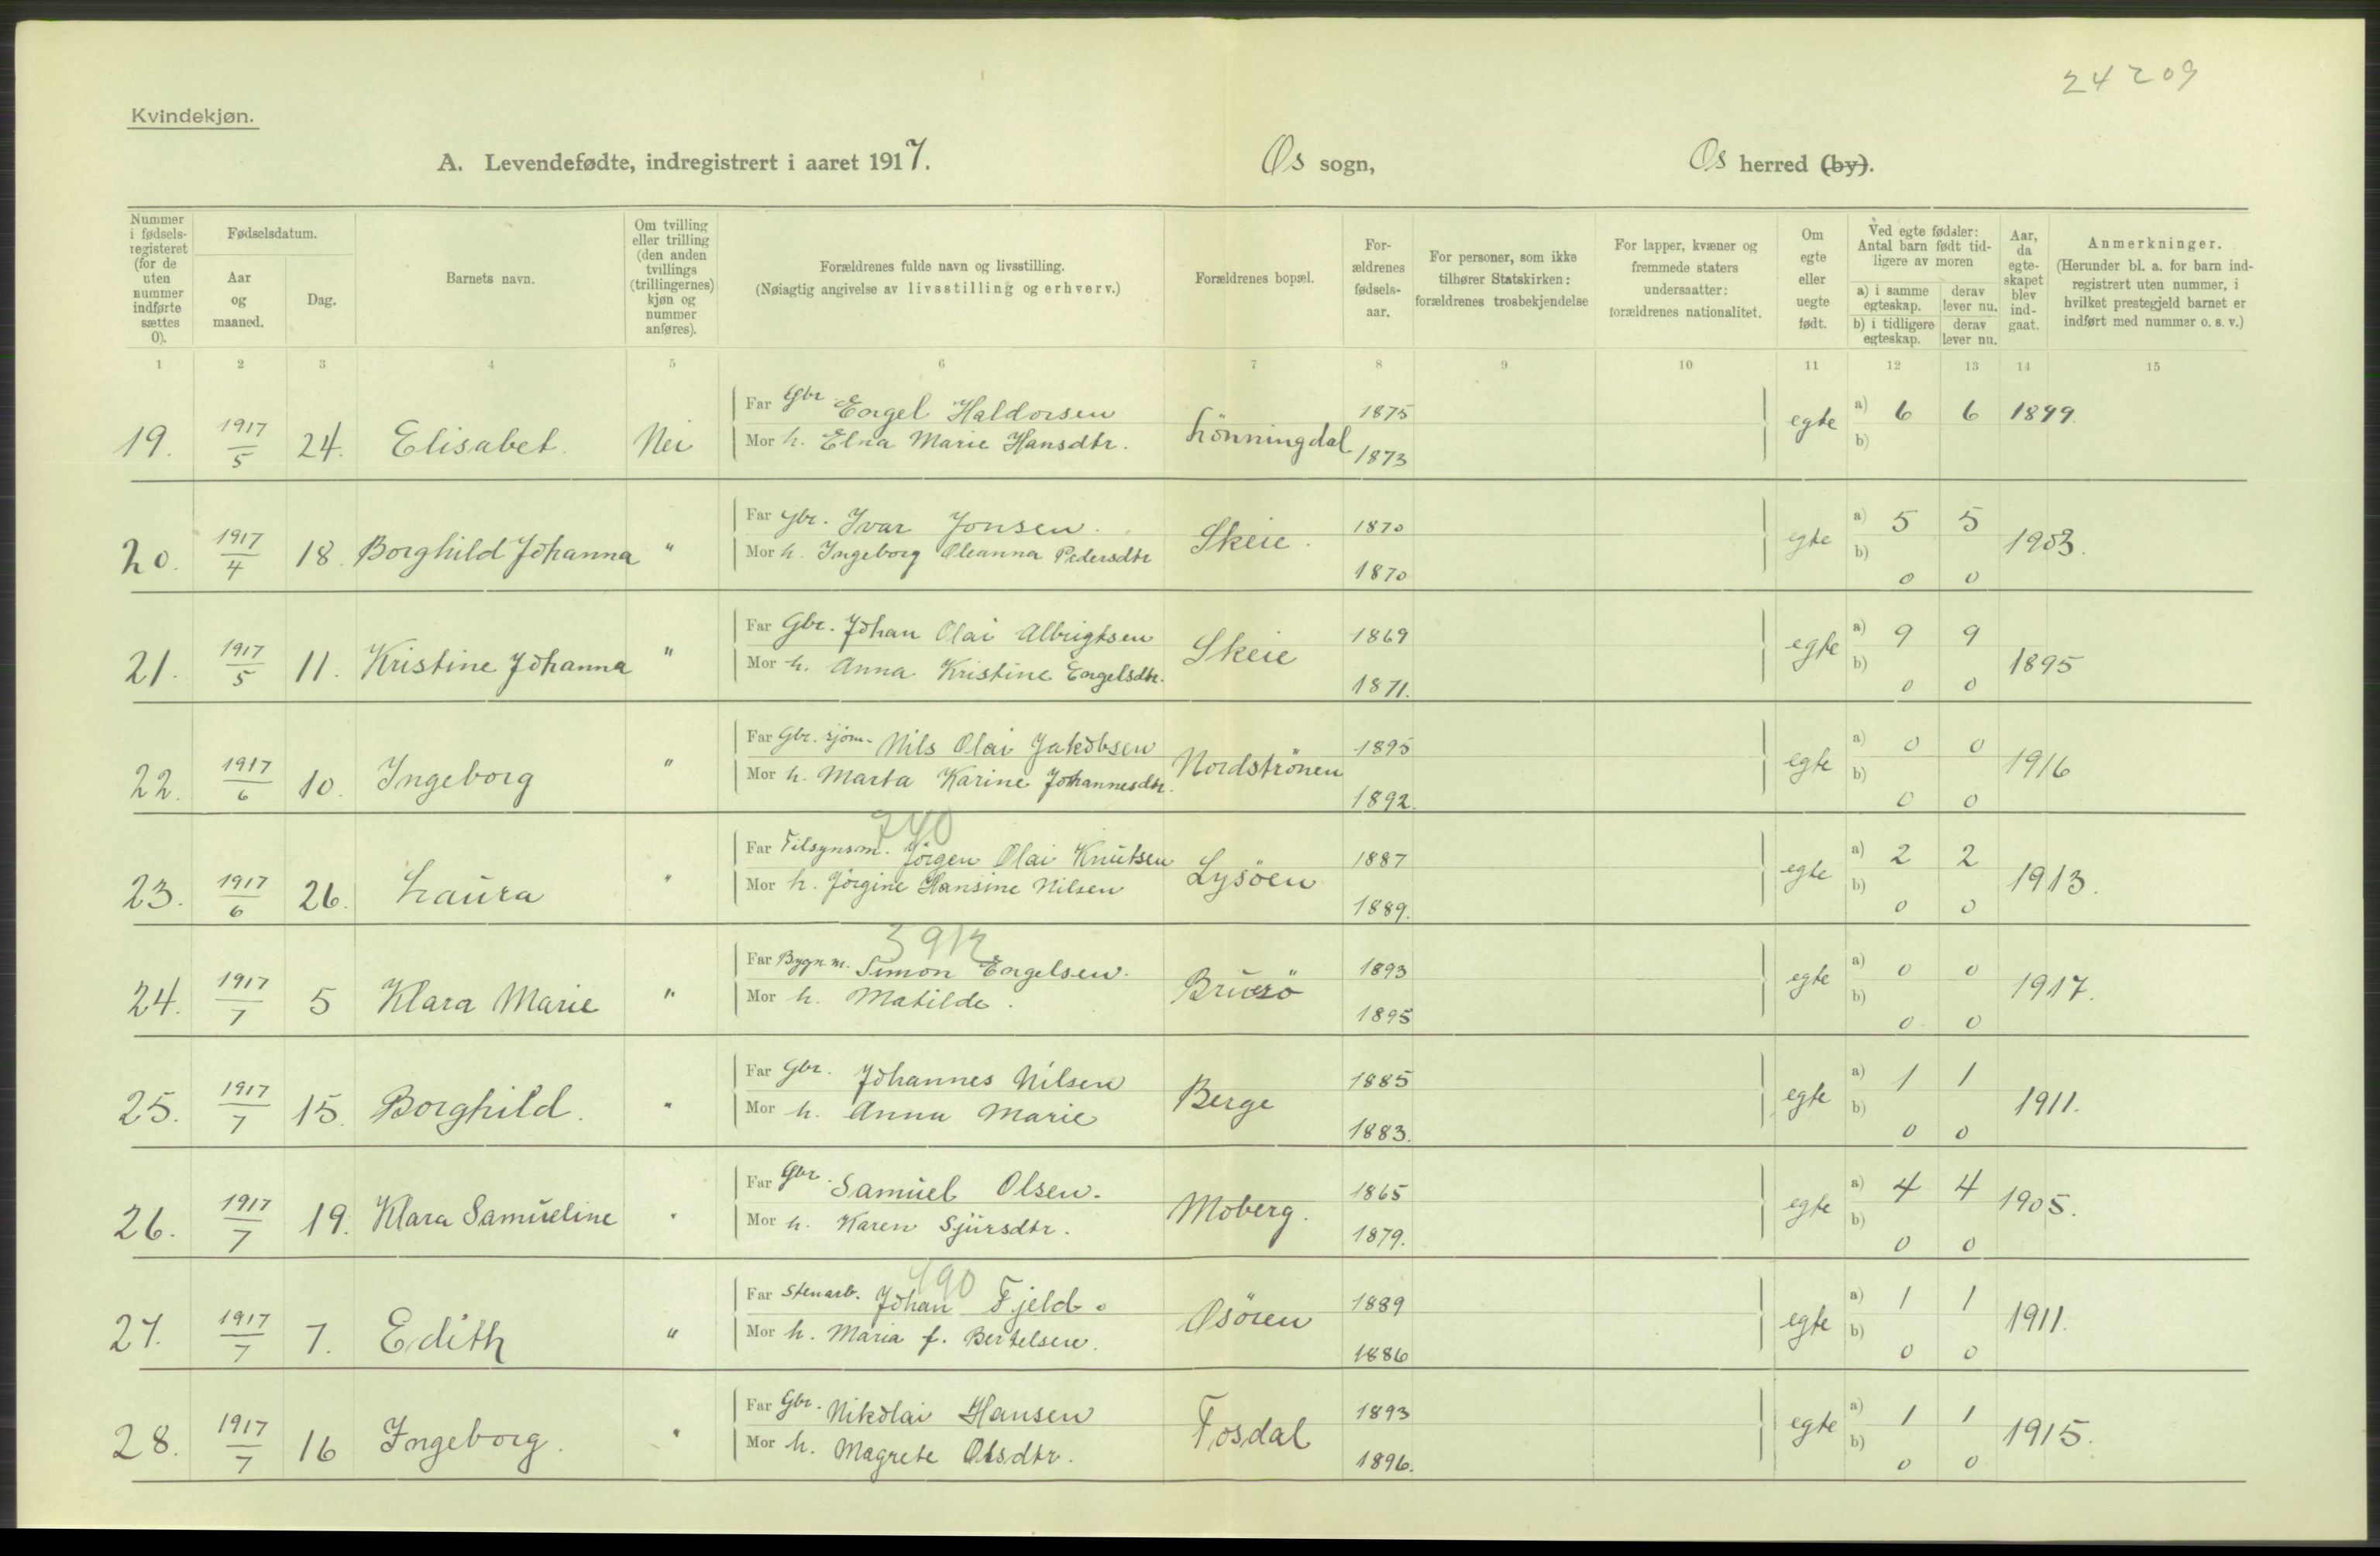 24 209
Kvindekjøn.
A. Levendefødte, indregistrert i aaret 1917. Os sogn, Os herred (by).
Nummer i fødsels-registeret (for de uten nummer indførte sættes 0).
Fødselsdatum.
Aar og maaned.
Dag.
Barnets navn.
Om tvilling eller trilling (den anden tvillings (trillingernes) kjøn og nummer anføres).
Forældrenes fulde navn og livsstilling.
(Nøiagtig angivelse av livsstilling og erhverv.)
Forældrenes bopæl.
For-ældrenes fødsels-aar.
For personer, som ikke tilhører Statskirken: forældrenes trosbekjendelse
For lapper, kvæner og fremmede staters undersaatter: forældrenes nationalitet.
Om egte eller uegte født.
Ved egte fødsler: Antal barn født tid-ligere av moren
a) i samme egteskap.
derav lever nu.
b) i tidligere egteskap.
derav lever nu.
Aar, da egte-skapet blev ind-gaat.
Anmerkninger.
(Herunder bl. a. for barn ind-registrert uten nummer, i hvilket prestegjeld barnet er indført med nummer o. s. v.)
1 2 3 4 5 6 7 8 9 10 11 12 13 14 15
Far Gbr. Engel Haldorsen 1875 a) 6 6 1899.
19. 1917/5 24. Elisabet. Nei Mor h. Elna Marie Hansdtr. Lönningdal 1873 egte b)
Far Gbr. Ivar Jonsen. 1870 a) 5 5
20. 1917/4 18. Borghild Johanna " Mor h. Ingeborg Oleanna Pedersdtr Skeie. 1870 egte b) 0 0 1903.
Far Gbr. Johan Olai Albrigtsen 1869 a) 9 9
21. 1917/5 11. Kristine Johanna " Mor h. Anna Kristine Engelsdtr. Skeie 1871. egte b) 0 0 1895
Far Gbr. sjøm. Nils Olai Jakobsen 1895 a) 0 0
22. 1917/6 10. Ingeborg " Mor h. Marta Karine Johannesdtr. Nordströnen 1892. egte b) 0 0 1916
740
Far Tilsynsm. Jörgen Olai Knutsen 1887 a) 2 2
23. 1917/6 26. Laura " Mor h. Jörgine Hansine Nilsen Lysöen 1889. egte b) 0 0 1913.
Far Bygn m. Simon Engelsen. 1893 a) 0 0
24. 1917/7 5 Klara Marie " Mor h. Matilde. 1895 egte b) 0 0 1917.
Far Gbr. Johannes Nilsen 1885 a) 1 1
25. 1917/7 15. Borghild. " Mor h. Anna Marie Berge 1883. egte b) 0 0 1911.
Far Gbr. Samuel Olsen. 1865 a) 4 4
26. 1917/7 19. Klara Samueline " Mor h. Karen Sjursdtr. Moberg. 1879. egte b) 0 0 1905.
490
Far Stenarb. Johan Fjeld. 1889 a) 1 1
27. 1917/7 7. Edith " Mor h. Maria f. Bertelsen. Osören 1886 egte b) 0 0 1911.
Far Gbr. Nikolai Hansen 1893 a) 1 1
28. 1917/7 16 Ingeborg. " Mor h. Magrete Olsdtr. Fosdal 1896. egte b) 0 0 1915.